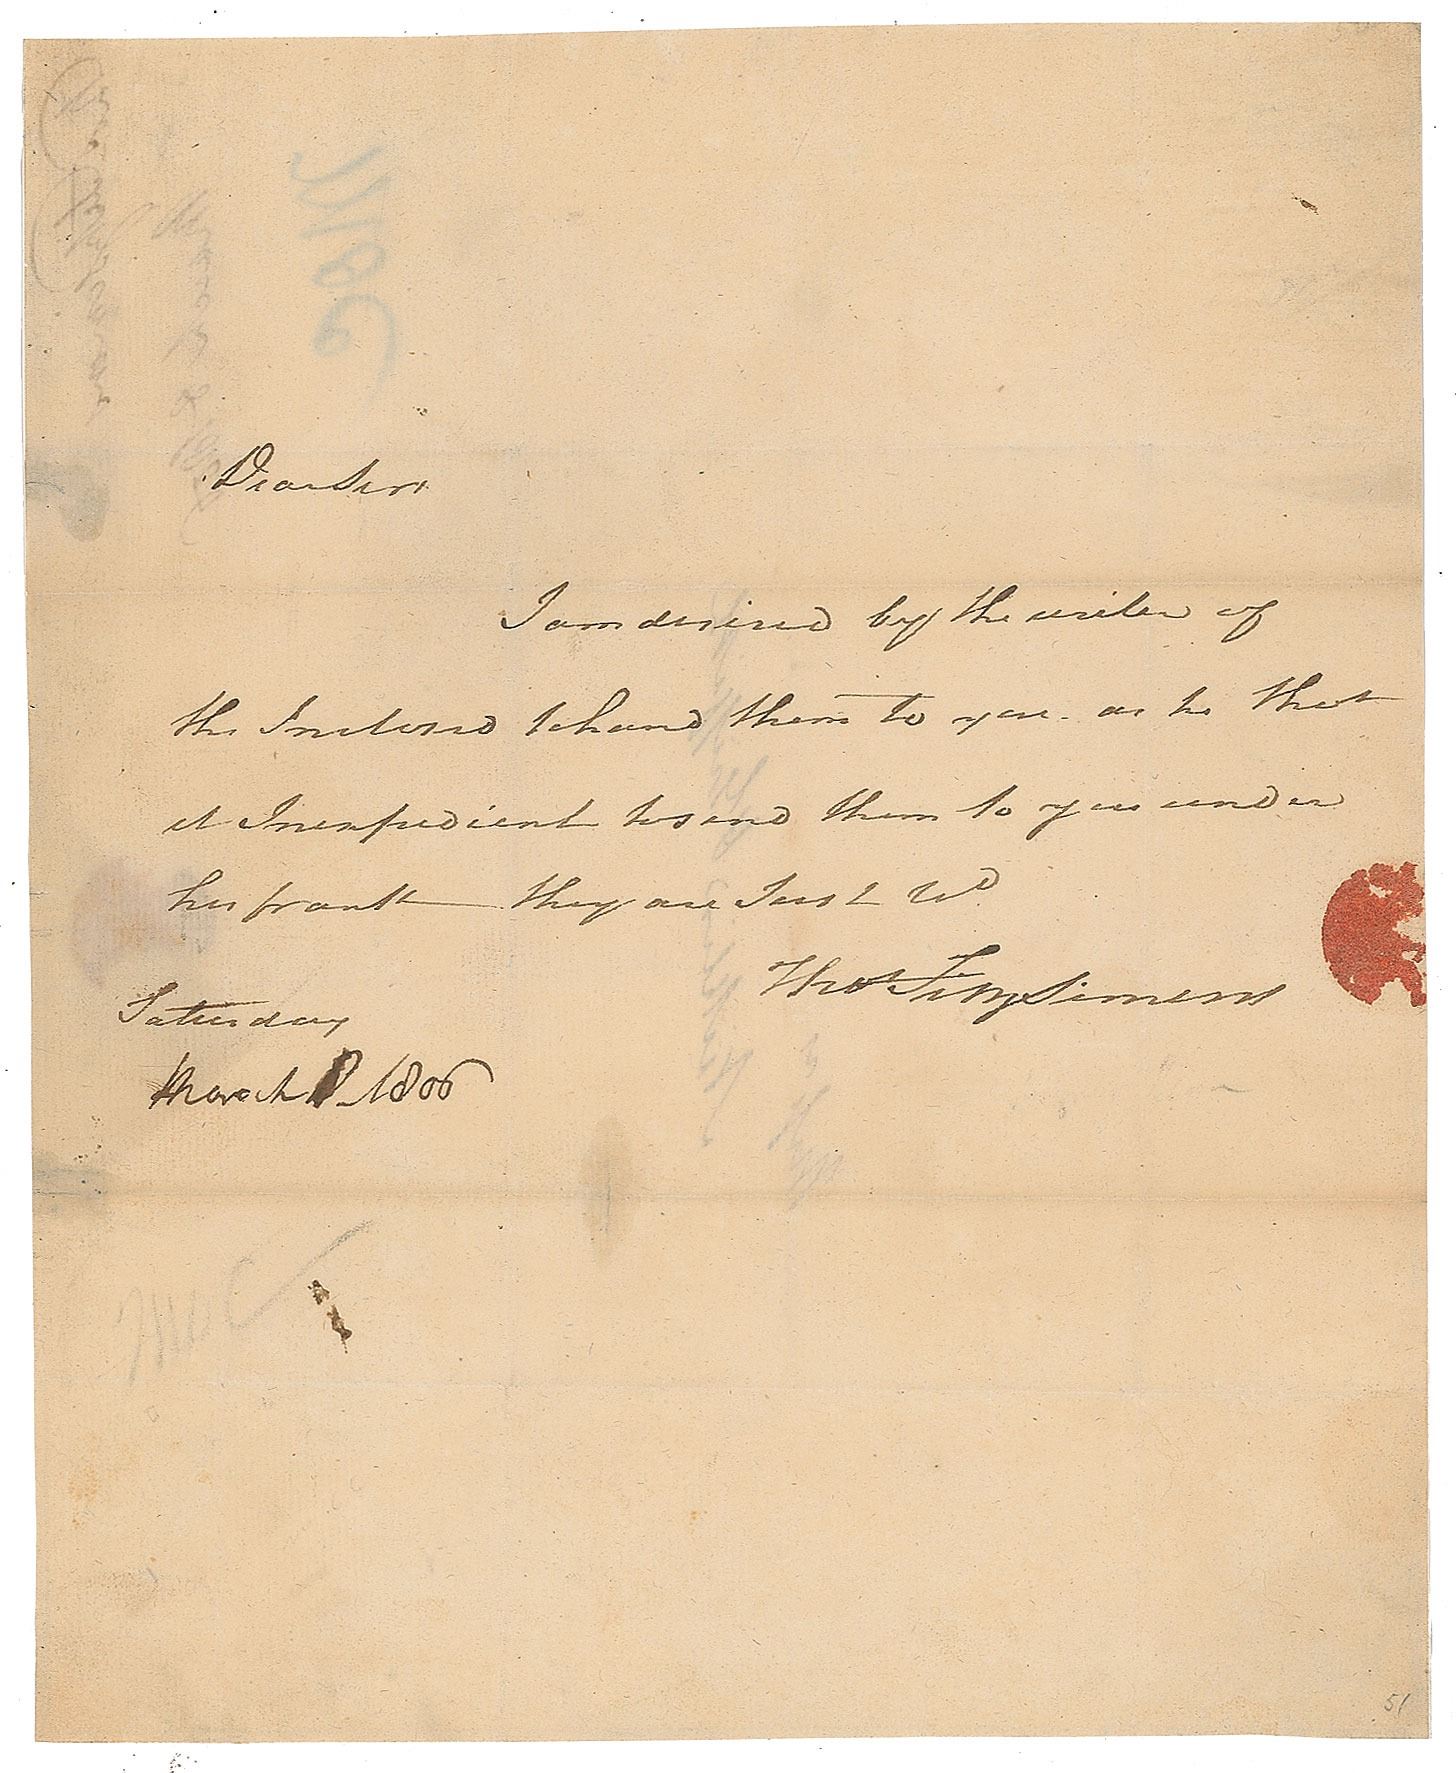 Dear Sir
I am desired by the writer of
the Inclosed to hand them to you. as he thot
it Inexpedient to send them to you under
his frank — they are Just recd
Thos FitzSimons
Saturday
March 8 1806
51